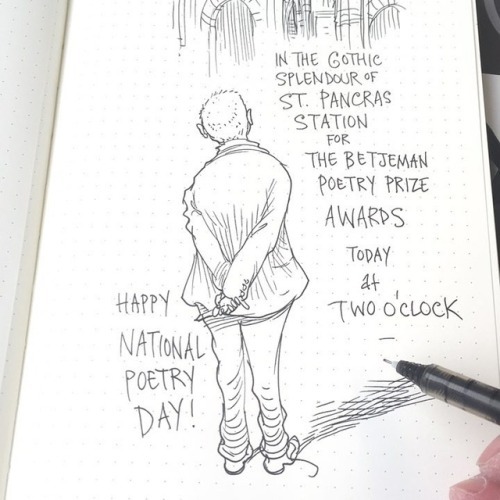 IN THE GOTHIC
SPLENDOUR OF
ST. PANCRAS
STATION
FOR
THE BETJEMAN
POETRY PRIZE
AWARDS
TODAY
at
TWO O'CLOCK
HAPPY
NATIONAL
POETRY
DAY!